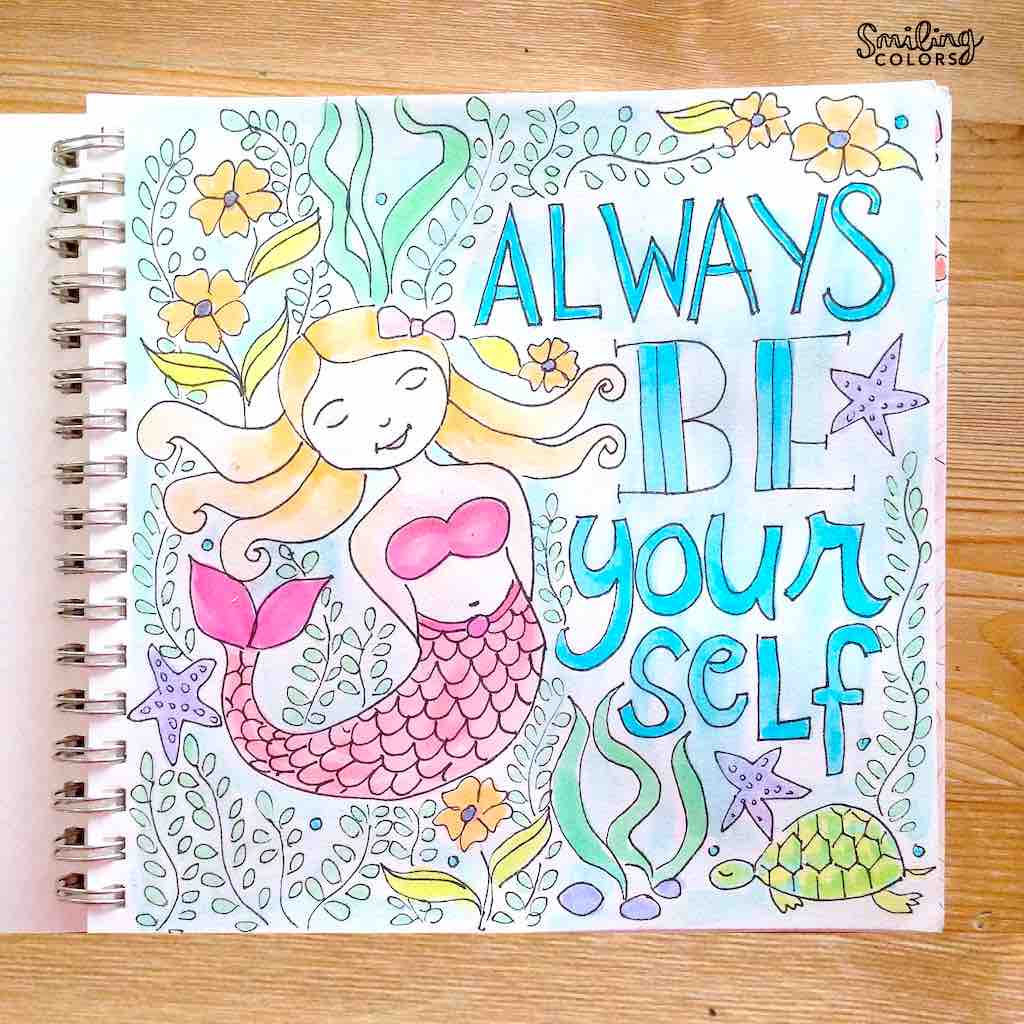 Smiling
COLORS
ALWAYS
BE
your
self